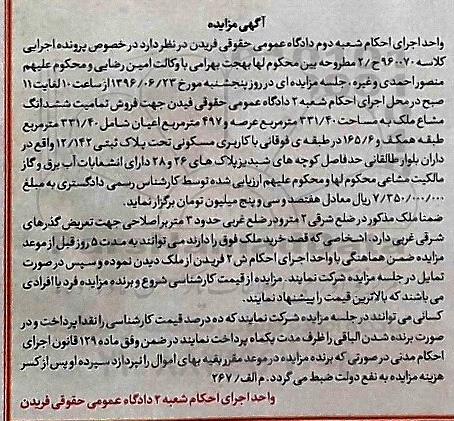 آگهی مزایده
واحد اجرای احکام شعبه دوم دادگاه عمومی حقوقی فریدن در نظر دارد در خصوص پرونده اجرایی
کلاسه ۹۶۰۰۷۰ ح/۲ مطروحه بین محکوم لها بهجت بهرامی با وکالت امین رضایی و محکوم علیهم
منصور احمدی و غیره، جلسه مزایده ای در روز پنجشنبه مورخ ۱۳۹۶/۰۶/۲۳ از ساعت ۱۰ لغایت ۱۱
صبح در محل اجرای احکام شعبه ۲ دادگاه عمومی حقوقی فیدن جهت فروش تمامیت ششدانگ
مشاع ملک به مساحت ۳۳۱/۴۰ مترمربع عرصه و ۴۹۷ مترمربع اعیان شامل ۳۳۱/۴۰ مترمربع
طبقه همکف و ۱۶۵/۶ در طبقه ی فوقانی با کاربری مسکونی تحت پلاک ثبتی ۱۲/۱۴۲ واقع در
داران بلوار طالقانی حدفاصل کوچه های شبدیز پلاک های ۲۶ و ۲۸ دارای انشعابات آب برق و گاز
مالکیت مشاعی محکوم لها و محکوم علیهم ارزیابی شده توسط کارشناس رسمی دادگستری به مبلغ
۷/۳۵۰/۰۰۰/۰۰۰ ریال معادل هفتصد و سی و پنج میلیون تومان برگزار نماید.
ضمنا ملک مذکور در ضلع شرقی ۲ متر و در ضلع غربی حدود ۳ متر بر اصلاحی جهت تعریض گذرهای
شرقی غربی دارد. اشخاصی که قصد خرید ملک فوق را دارند می توانند به مدت ۵ روز قبل از موعد
مزایده ضمن هماهنگی با واحد اجرای احکام ش ۲ فریدن از ملک دیدن نموده و سپس در صورت
تمایل در جلسه مزایده شرکت نمایند. مزایده از قیمت کارشناسی شروع و برنده مزایده فرد یا افرادی
می باشند که بالاترین قیمت را پیشنهاد نمایند.
کسانی می توانند در جلسه مزایده شرکت نمایند که ده درصد قیمت کارشناسی را نقدا پرداخت و در
صورت برنده شدن الباقی را ظرف مدت یکماه پرداخت نمایند در ضمن وفق ماده ۱۲۹ قانون اجرای
احکام مدنی در صورتی که برنده مزایده در موعد مقرر بقیه بهای اموال را نپردازد سپرده او پس از کسر
هزینه مزایده به نفع دولت ضبط می گردد. م الف/ ۲۶۷
واحد اجرای احکام شعبه ۲ دادگاه عمومی حقوقی فریدن